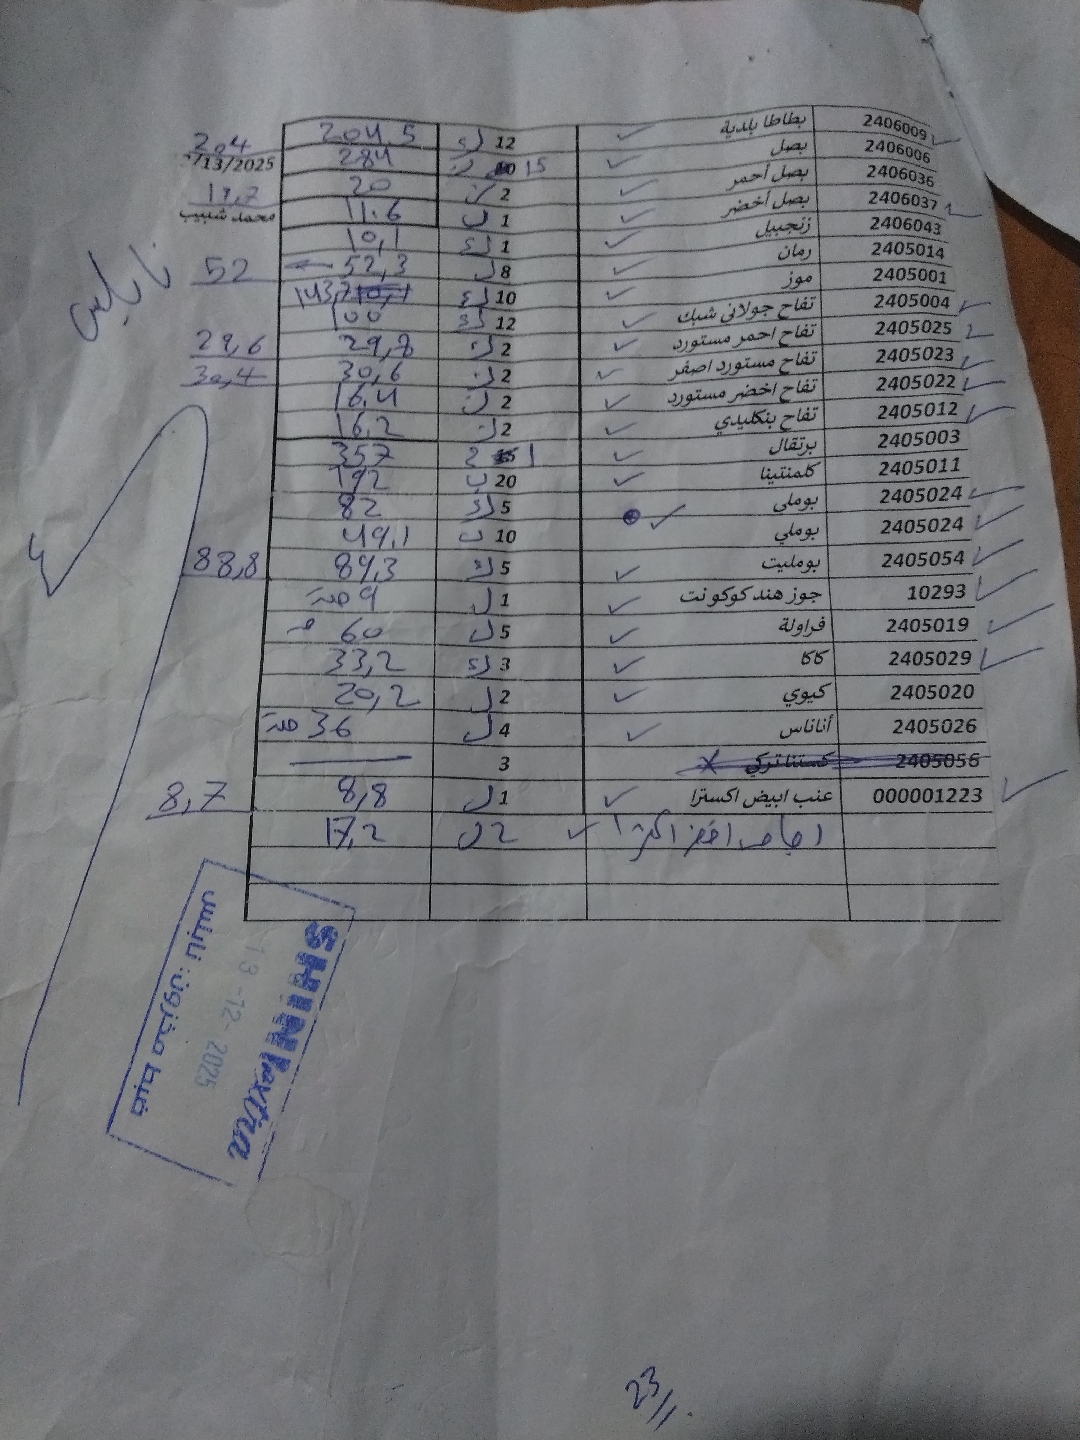 2406009 بطاطا بلدية ✓ 12 ك 204.5 204
2406006 بصل ✓ 15 284 /13/2025
2406036 بصل أحمر ✓ 2 20 19,7
2406037 بصل أخضر ✓ 1 ب 11.6 محمد شبيب
2406043 زنجبيل ✓ 1 ك 10,1
2405014 رمان ✓ 8 ك 52,3 52
2405001 موز ✓ 10 ك 143,7
2405004 تفاح جولاني شبك ✓ 12 ك 100
2405025 تفاح احمر مستورد ✓ 2 ك 29,8 29,6
2405023 تفاح مستورد اصفر ✓ 2 ك 30,6 30,4
2405022 تفاح اخضر مستورد ✓ 2 ك 16,4
2405012 تفاح بنكليدي ✓ 2 ك 16,2
2405003 برتقال ✓ 1 357
2405011 كلمنتينا ✓ 20 ب 192
2405024 بوملي ✓ 5 ك 82
2405024 بوملي 10 ب 49,1
2405054 بومليت ✓ 5 ك 89,3 88,8
10293 جوز هند كوكونت ✓ 1 ك 9 حبة
2405019 فراولة ✓ 5 ك 60
2405029 كاكا ✓ 3 ك 33,2
2405020 كيوي ✓ 2 ك 20,2
2405026 أناناس ✓ 4 ك 36 حبة
2405056 كستنا تركي X 3
000001223 عنب ابيض اكسترا ✓ 1 ك 8,8 8,7
اجاص اخضر اكسترا ✓ 2 ك 17,2
نابلس
SHINI extra
13-12-2025
ضبط مخزون: نابلس
23/1